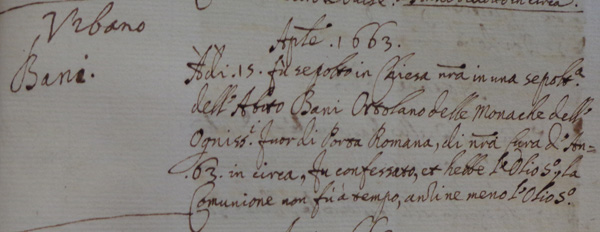 Urbano
Bani.
Aple. 1663.
Adi. 15. fù sepolto in Chiesa nrã in una sepoltª.
dell'Abito Bani Ortolano delle Monache dell'
Ogniss.i fuor di Porta Romana, di nrã Cura d'An-
63. in circa, fu confessato, et hebbe l'Olio Sº, la
Comunione non fù a tempo, ne meno l'Olio Sº.